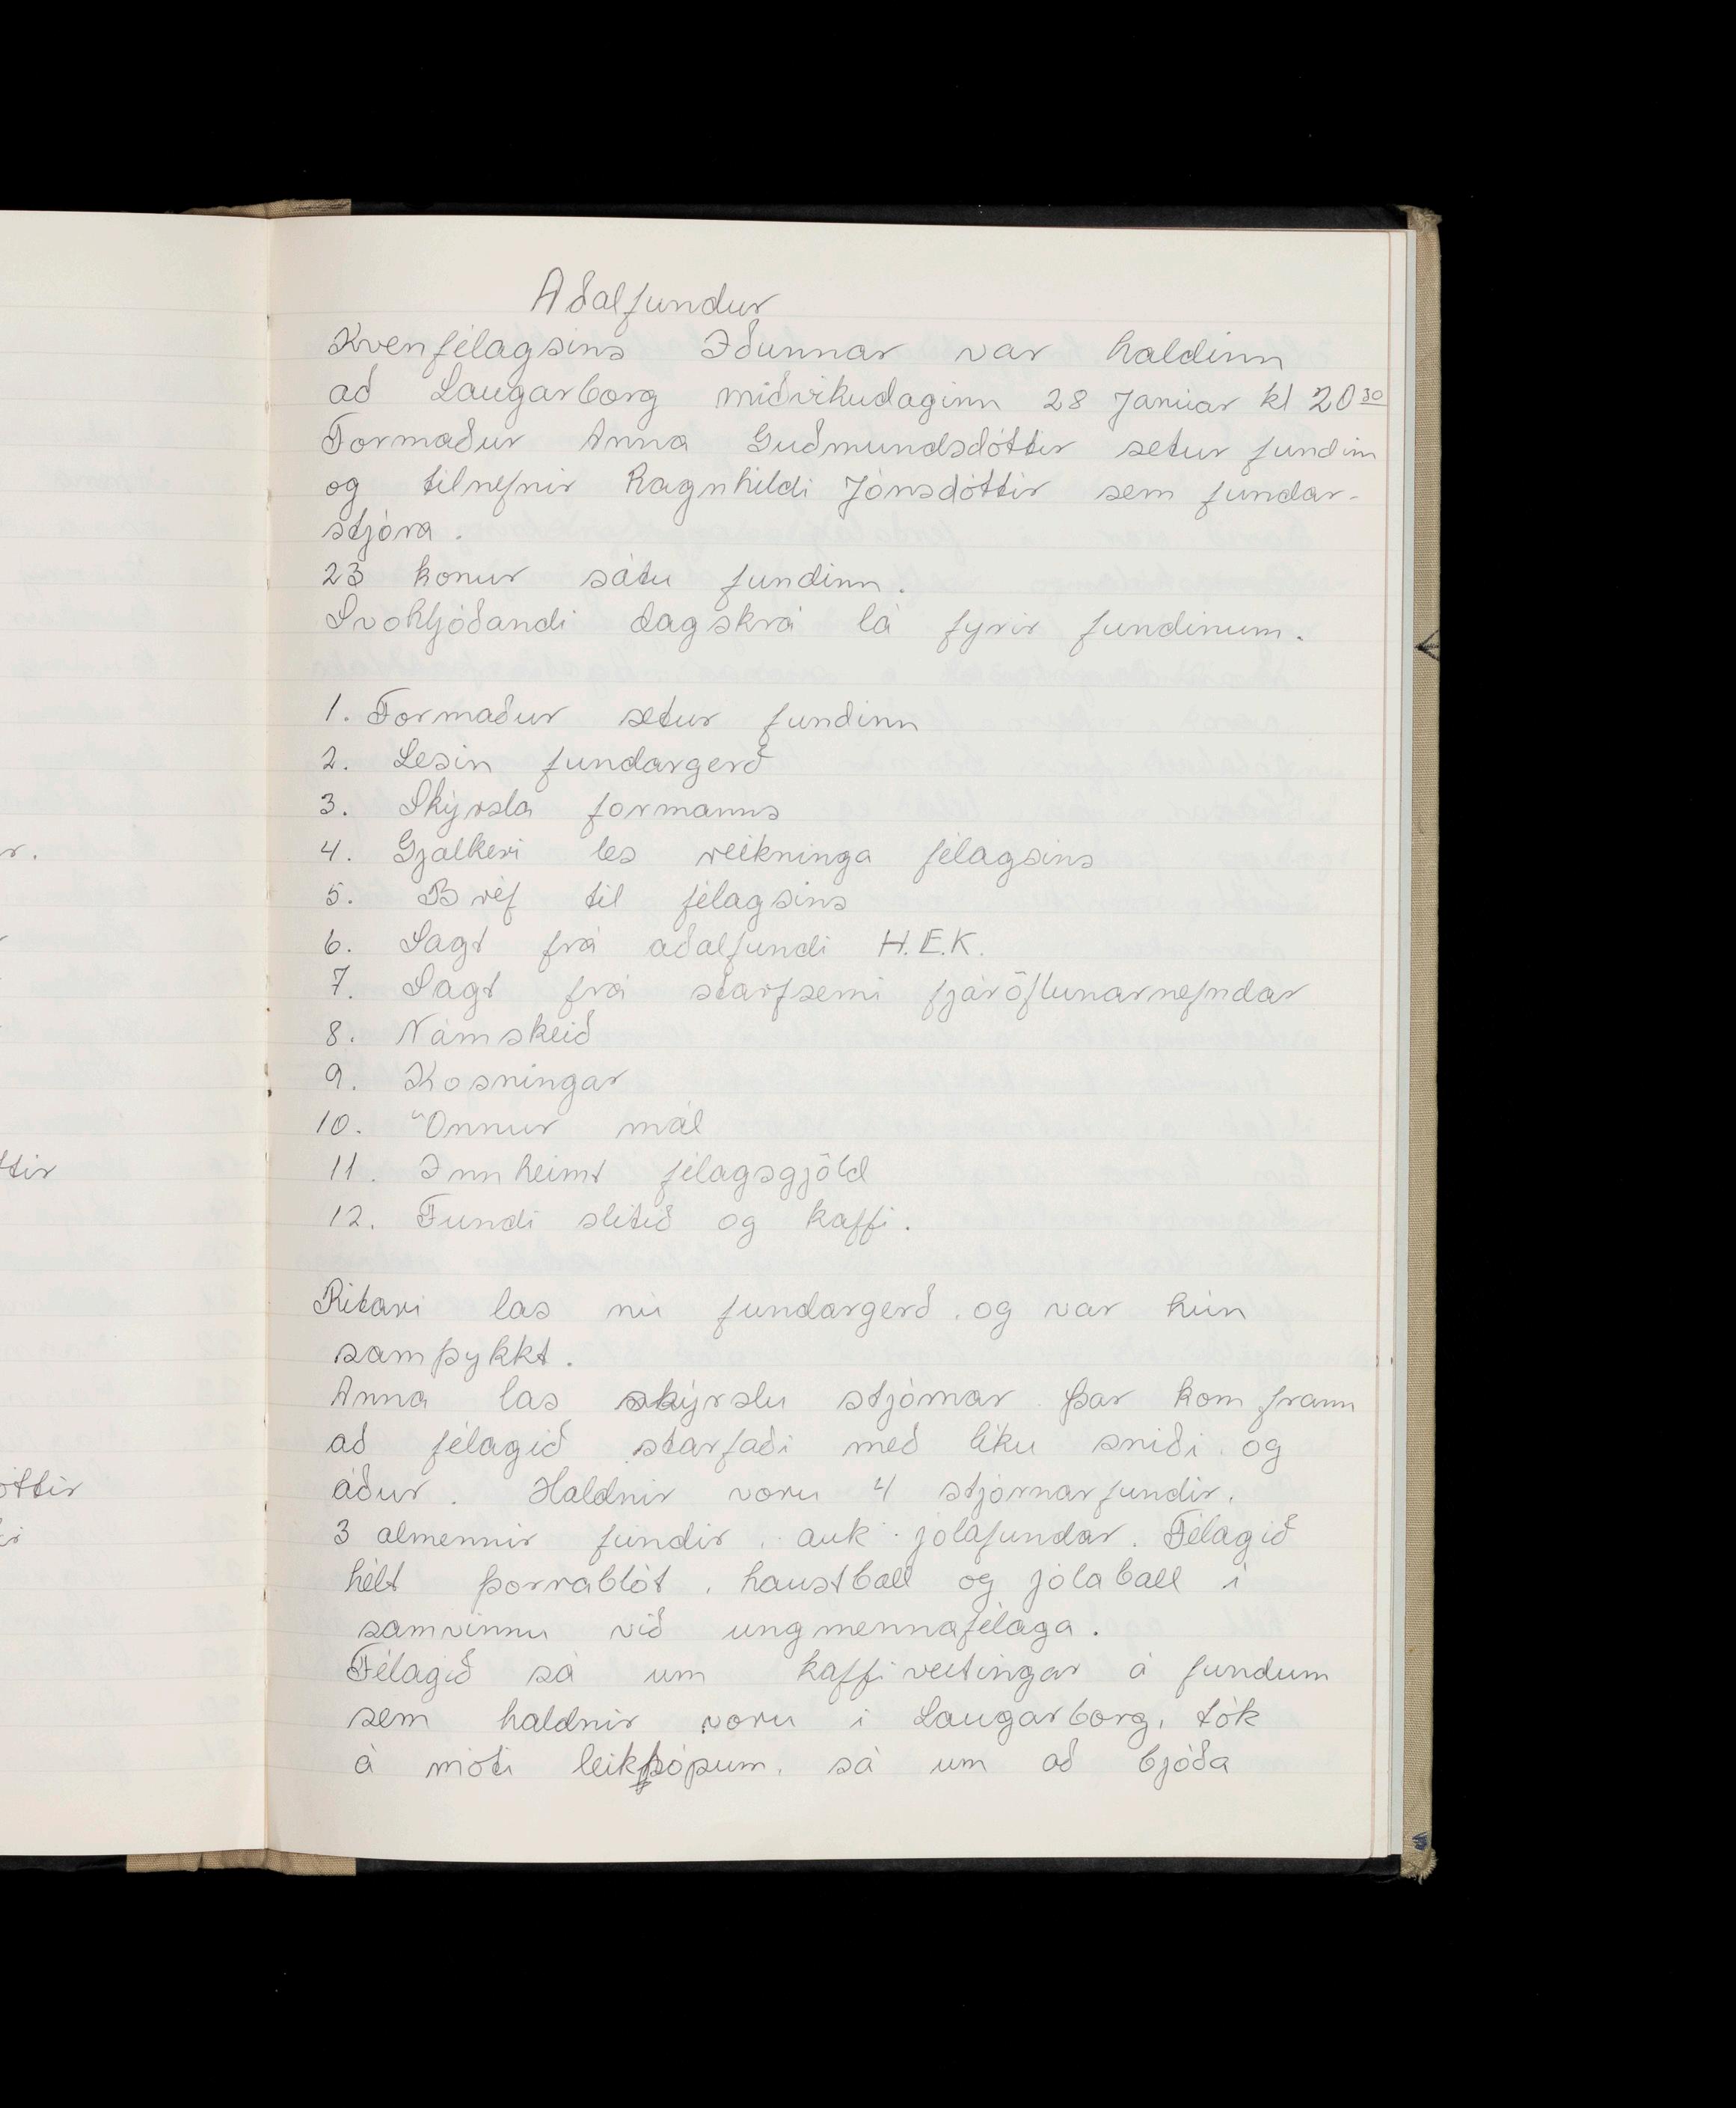 Aðalfundur
Kvenfélagsins Iðunnar var haldinn
að Laugarborg miðvikudaginn 28 Janúar kl 20 30
Formaður Anna Guðmundsdóttir setur fundinn
og tilnefnir Ragnhildi Jónsdóttir sem fundar-
stjóra.
23 konur sátu fundinn.
Svohljóðandi dagskrá lá fyrir fundinum.
1. Formaður setur fundinn
2. Lesin fundargerð
3. Skýrsla formanns
4. Gjalkeri les reikninga félagsins
5. Bréf til félagsins
6. Sagt frá aðalfundi H.E.K.
7. Sagt frá starfsemi fjáröflunarnefndar
8. Námskeið
9. Kosningar
10. Önnur mál
11. Innheimt félagsgjöld
12. Fundi slitið og kaffi.
Ritari las nú fundargerð, og var hún
samþykkt.
Anna las skýrslu stjórnar þar kom fram
að félagið starfaði með líku sniði og
áður. Haldnir voru 4 stjórnarfundir,
3 almennir fundir, auk jólafundar. Félagið
hélt þorrablót, haustball og jólaball í
samvinnu við ungmennafélaga.
Félagið sá um kaffiveitingar á fundum
sem haldnir voru í Laugarborg, tók
á móti sá um að bjóða
r.
ttir
óttir